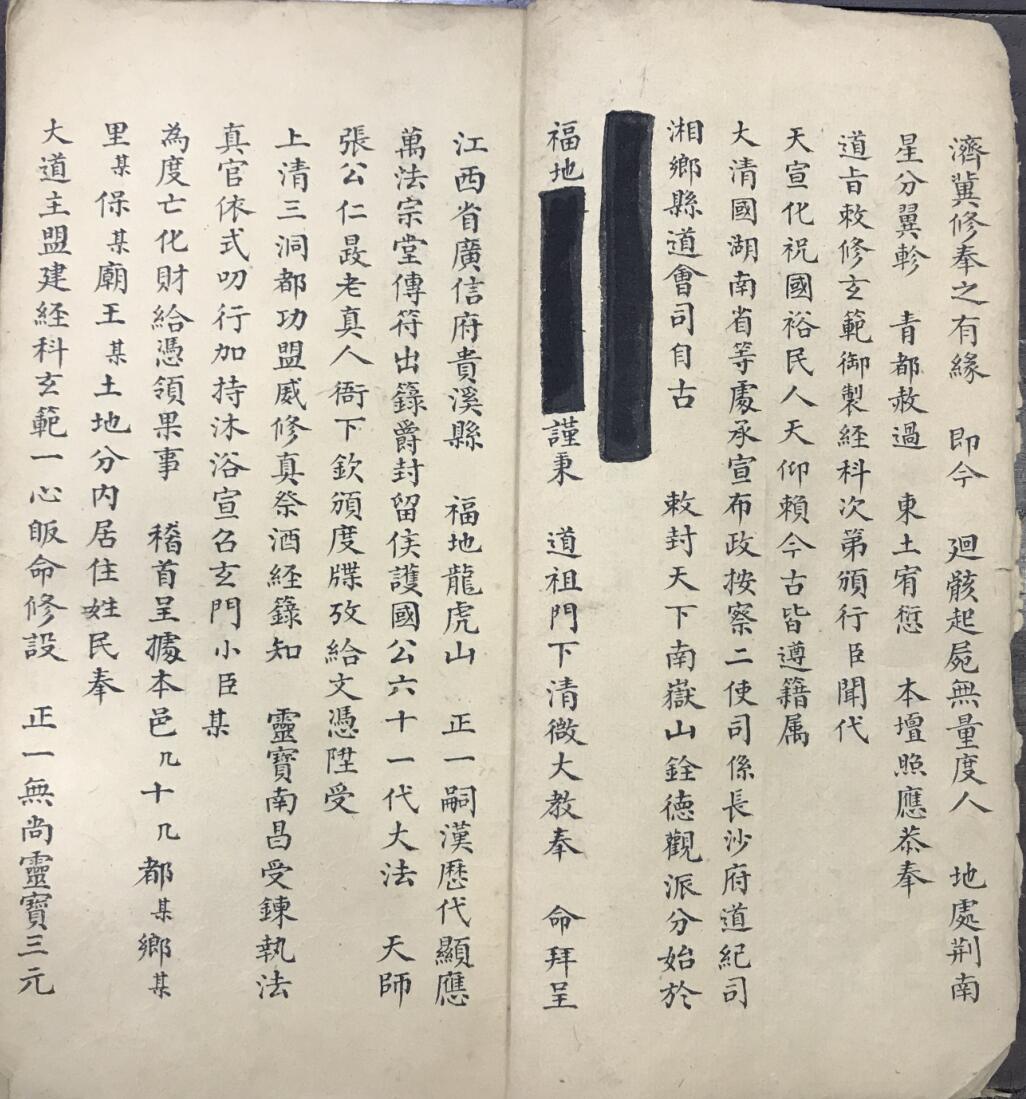 濟冀修奉之有緣 即今 廻骸起屍無量度人 地處荆南
星分翼軫 青都赦過 東土宥愆 本壇照應恭奉
道旨敕修玄範御製経科次第頒行臣聞代
天宣化祝國裕民人天仰賴今古皆遵籍属
大清國湖南省等處承宣布政按察二使司係長沙府道紀司
湘鄉縣道會司自古 敕封天下南嶽山銓德觀派分始於
福地 謹秉 道祖門下清微大教奉 命拜呈
江西省廣信府貴溪縣 福地龍虎山 正一嗣漢歷代顯應
萬法宗堂傳符出籙爵封留侯護國公六十一代大法 天師
張公仁晸老真人衙下欽頒度牒攷給文憑陞受
上清三洞都功盟威修真祭酒経籙知 靈寶南昌受鍊執法
真官依式叨行加持沐浴宣召玄門小臣 某
為度亡化財給憑領果事 稽首呈據本邑几十几都某鄉某
里某保某廟王某土地分内居住姓民奉
大道主盟建経科玄範一心皈命修設 正一無尚靈寶三元